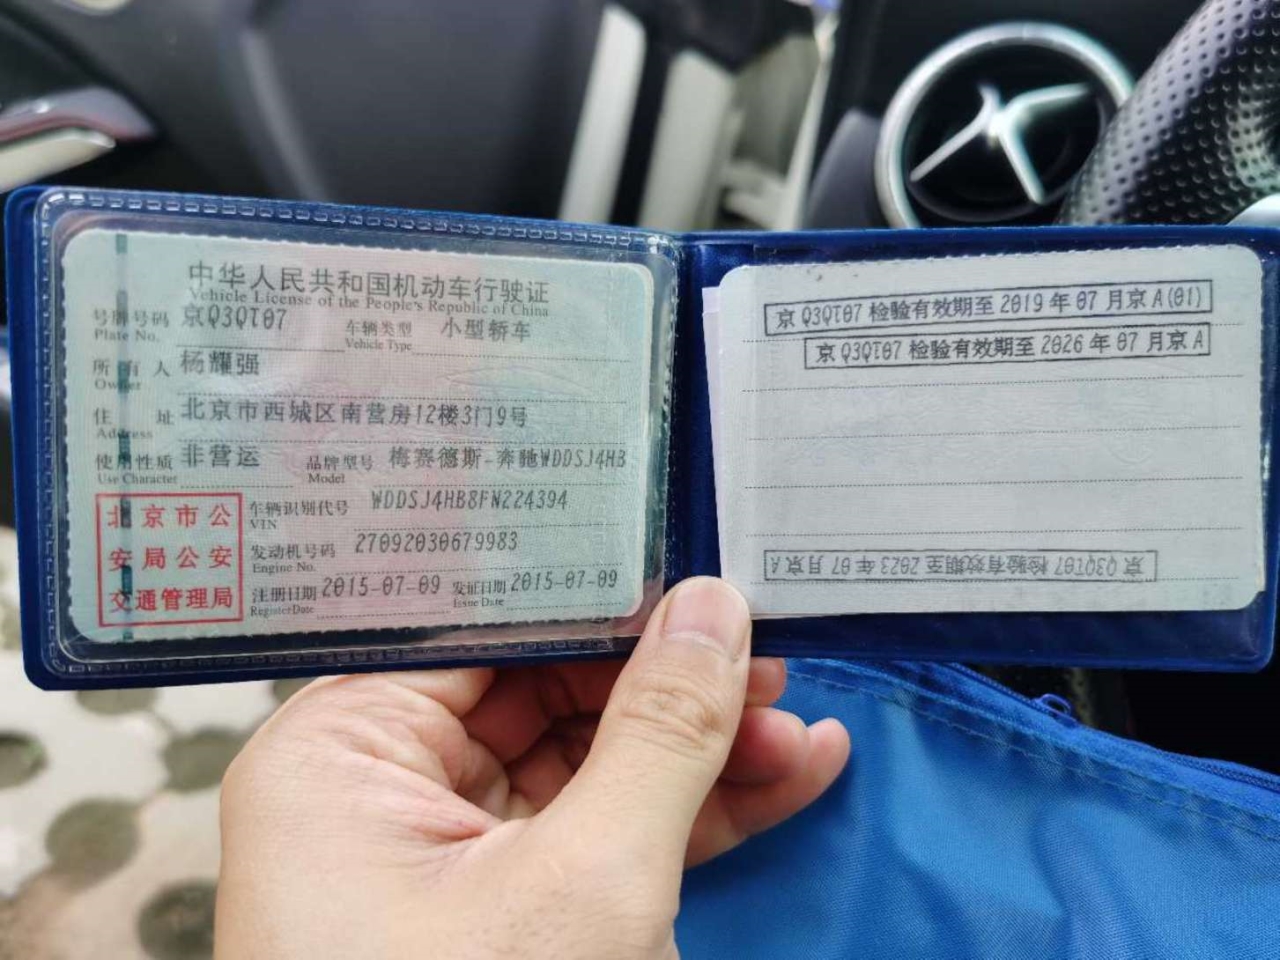 中华人民共和国机动车行驶证
Vehicle License of the People's Republic of China
号牌号码 京Q3QT07 车辆类型 小型轿车
Plate No. Vehicle Type
所有人 杨耀强
Owner
住址 北京市西城区南营房12楼3门9号
Address
使用性质 非营运 品牌型号 梅赛德斯-奔驰WDDSJ4HB
Use Character Model
北京市公
安局公安
交通管理局
车辆识别代号 WDDSJ4HB8FN224394
VIN
发动机号码 27092030679983
Engine No.
注册日期 2015-07-09 发证日期 2015-07-09
Register Date Issue Date
京Q3QT07检验有效期至2019年07月京A(01)
京Q3QT07检验有效期至2026年07月京A
京Q3QT07检验有效期至2023年07月京A